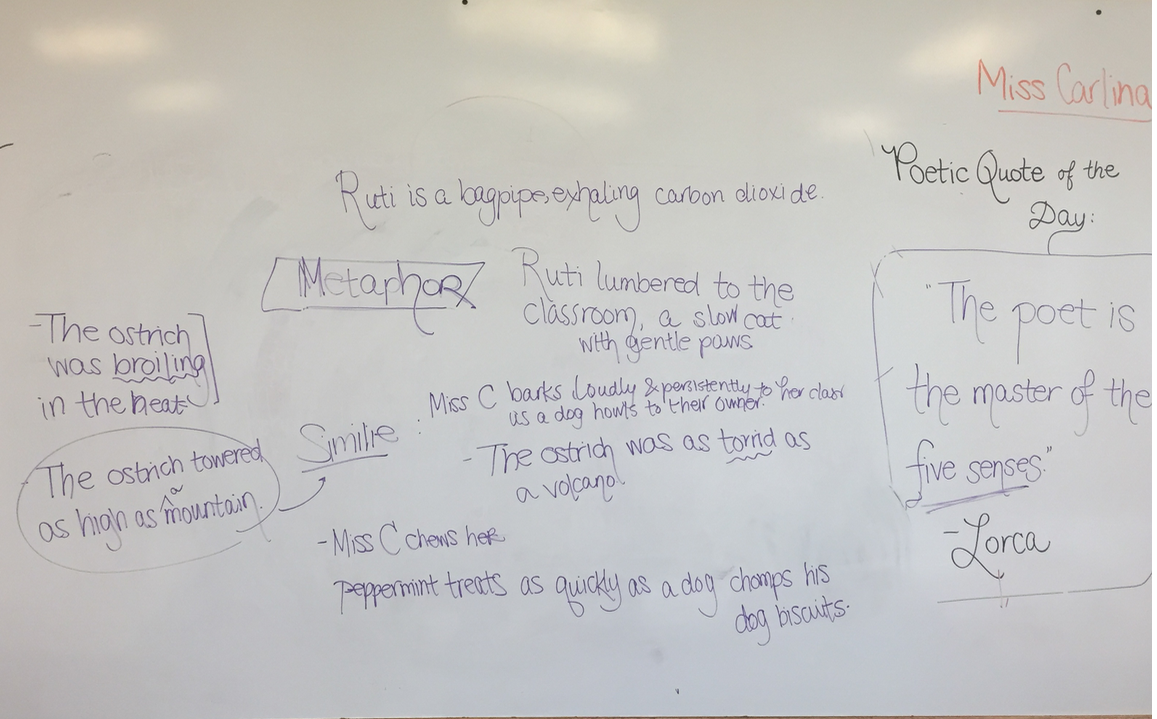 Miss Carlina
Poetic Quote of the
Day:
"The poet is
the master of the
five senses."
-Lorca
Ruti is a bagpipe, exhaling carbon dioxide.
Metaphor
Ruti lumbered to the
classroom, a slow cat
with gentle paws
-The ostrich
was broiling
in the heat
The ostrich towered
as high as a mountain.
Similie :
Miss C barks loudly & persistently to her class
as a dog howls to their owner.
- The ostrich was as torrid as
a volcano
-Miss C chews her
peppermint treats as quickly as a dog chomps his
dog biscuits.